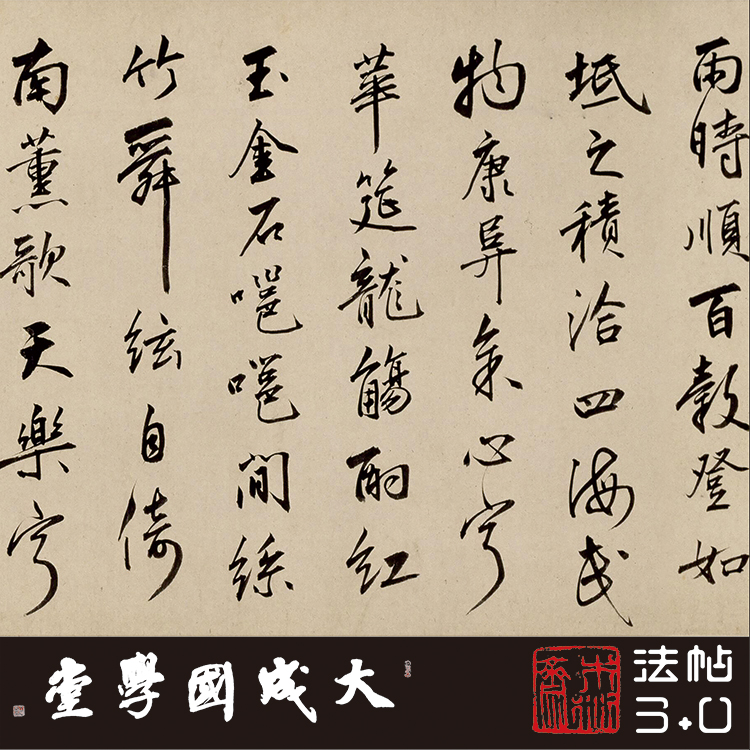 雨時順百穀登如
坻之積洽四海民
物康阜衆心寧
華筵龍觴酌紅
玉金石噰噰間絲
竹舜絃自倚
南薰歌天樂寧
大成國學堂
法帖
3.0